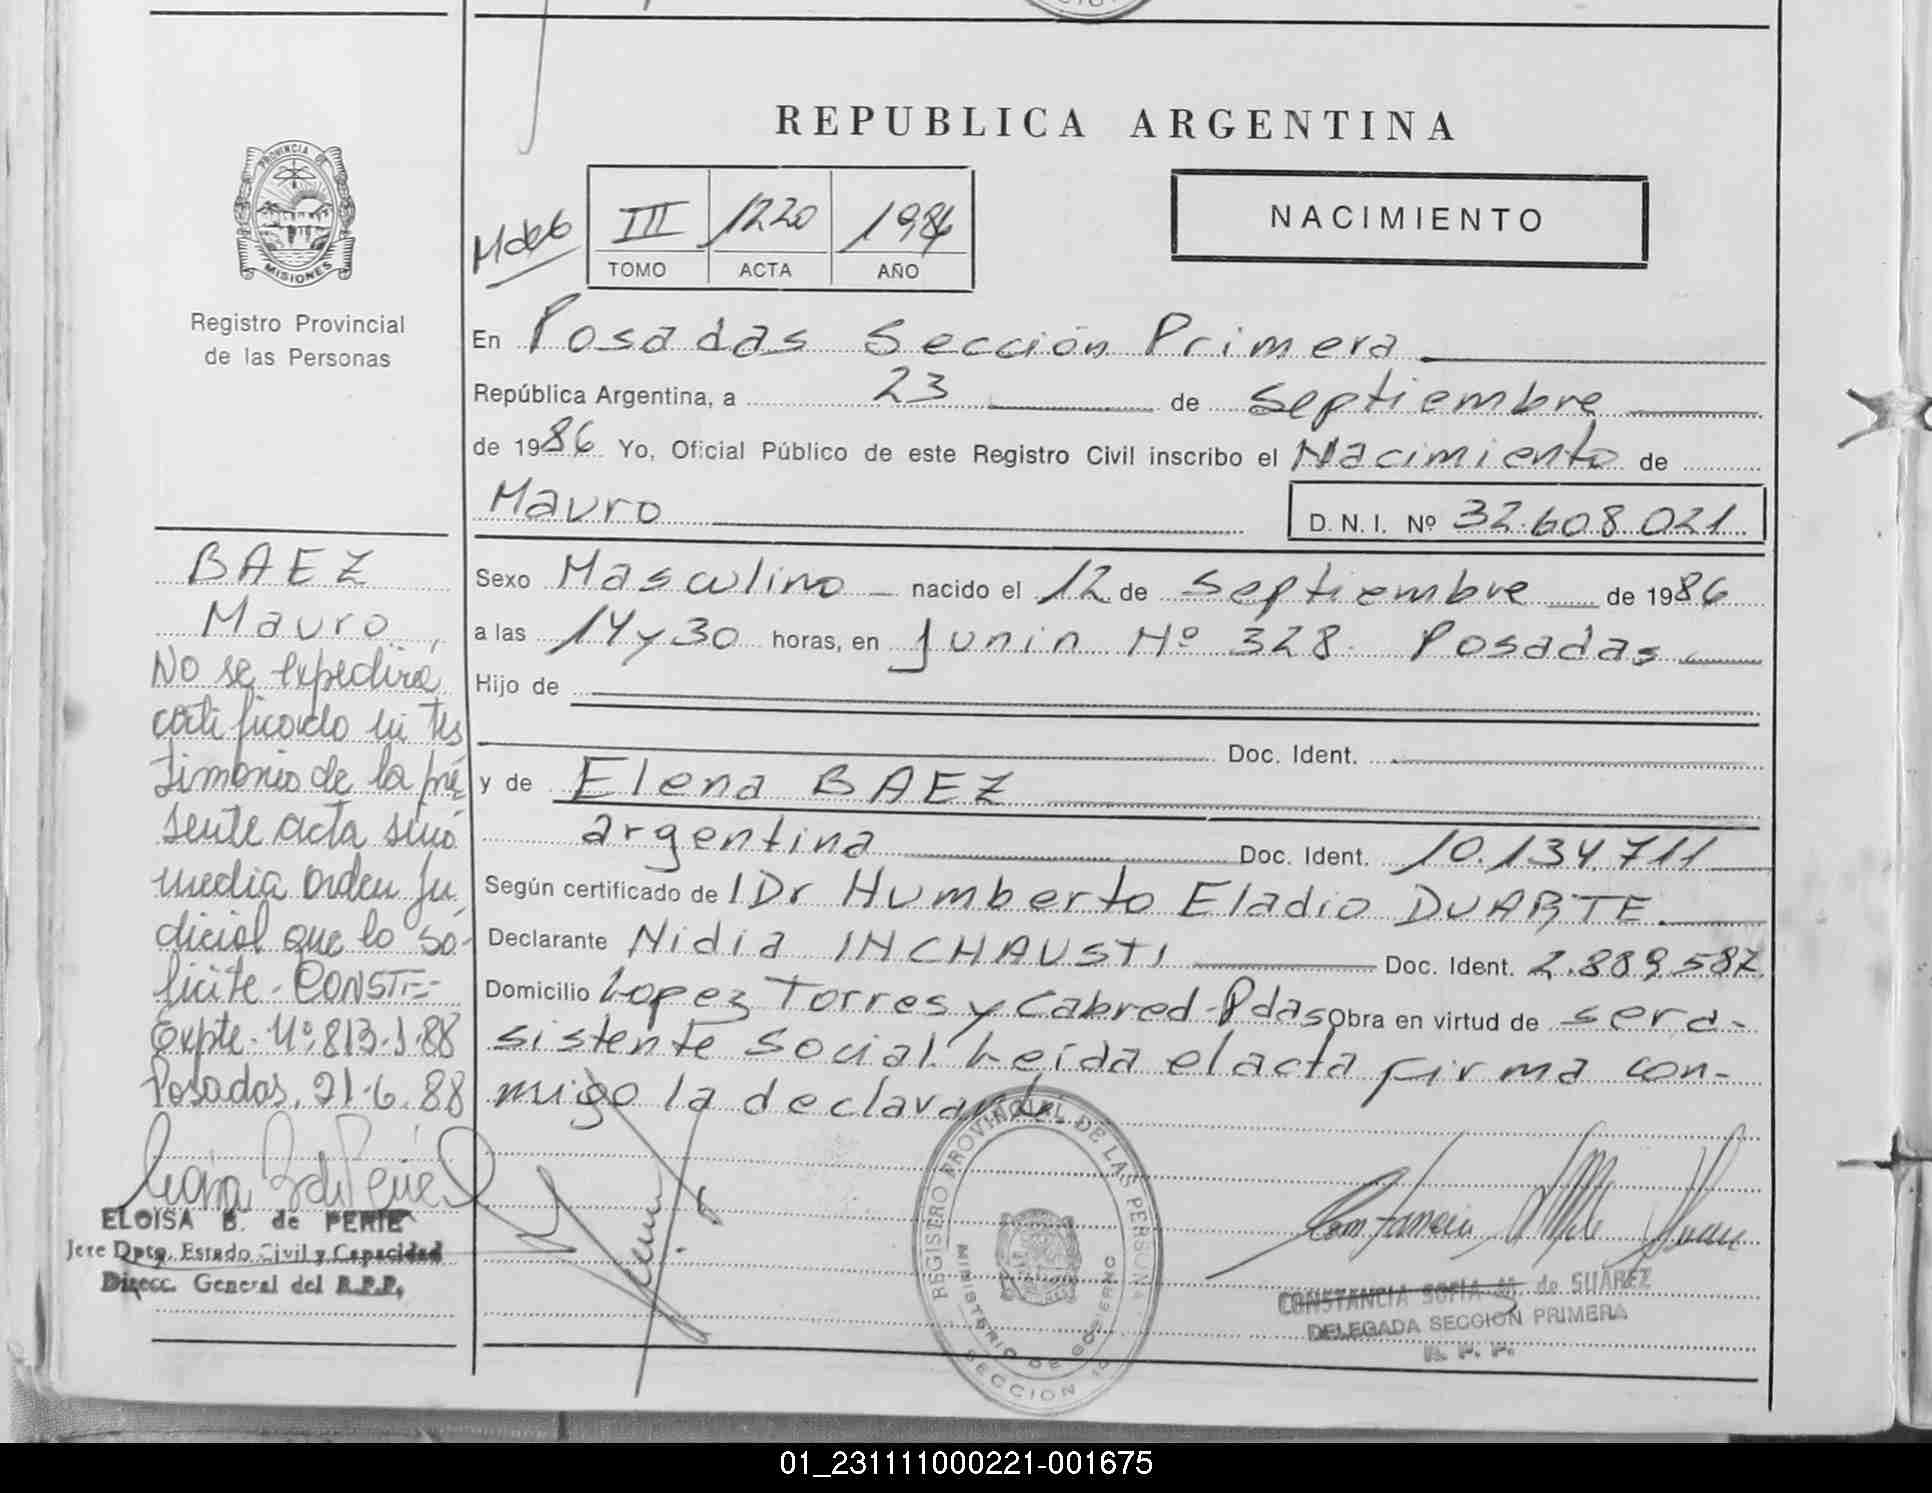 REPUBLICA ARGENTINA
PROVINCIA DE
MISIONES
Registro Provincial
de las Personas
III 1220 1986
TOMO ACTA AÑO
NACIMIENTO
En Posadas Sección Primera
República Argentina, a 23 de Septiembre
de 1986 Yo, Oficial Público de este Registro Civil inscribo el Nacimiento de
Mauro D.N.I. Nº 32.608.021
Sexo Masculino nacido el 12 de Septiembre de 1986
a las 14 y 30 horas, en Junin Nº 328. Posadas
Hijo de
Doc. Ident.
y de Elena BAEZ
argentina Doc. Ident. 10.134.711
Según certificado de Dr Humberto Eladio DUARTE.
Declarante Nidia INCHAUSTI Doc. Ident. 2.889.587
Domicilio Lopez Torres y Cabred-Pdas Obra en virtud de ser a-
sistente Social. Leída el acta firma con-
migo la declarante
BAEZ
Mauro
No se expedirá
certificado ni tes
timonio de la pre
sente acta sino
media orden Ju
dicial que lo so-
licite. CONSTE=
Expte. Nº 813-J-88
Posadas, 21-6-88
ELOISA B. de PERIE
Jefe Dpto. Estado Civil y Capacidad
Direcc. General del R.P.P.
REGISTRO PROVINCIAL DE LAS PERSONAS
MINISTERIO DE GOBIERNO
SECCION 1º
CONSTANCIA SOFIA M. de SUAREZ
DELEGADA SECCION PRIMERA
R. P. P.
01_231111000221-001675